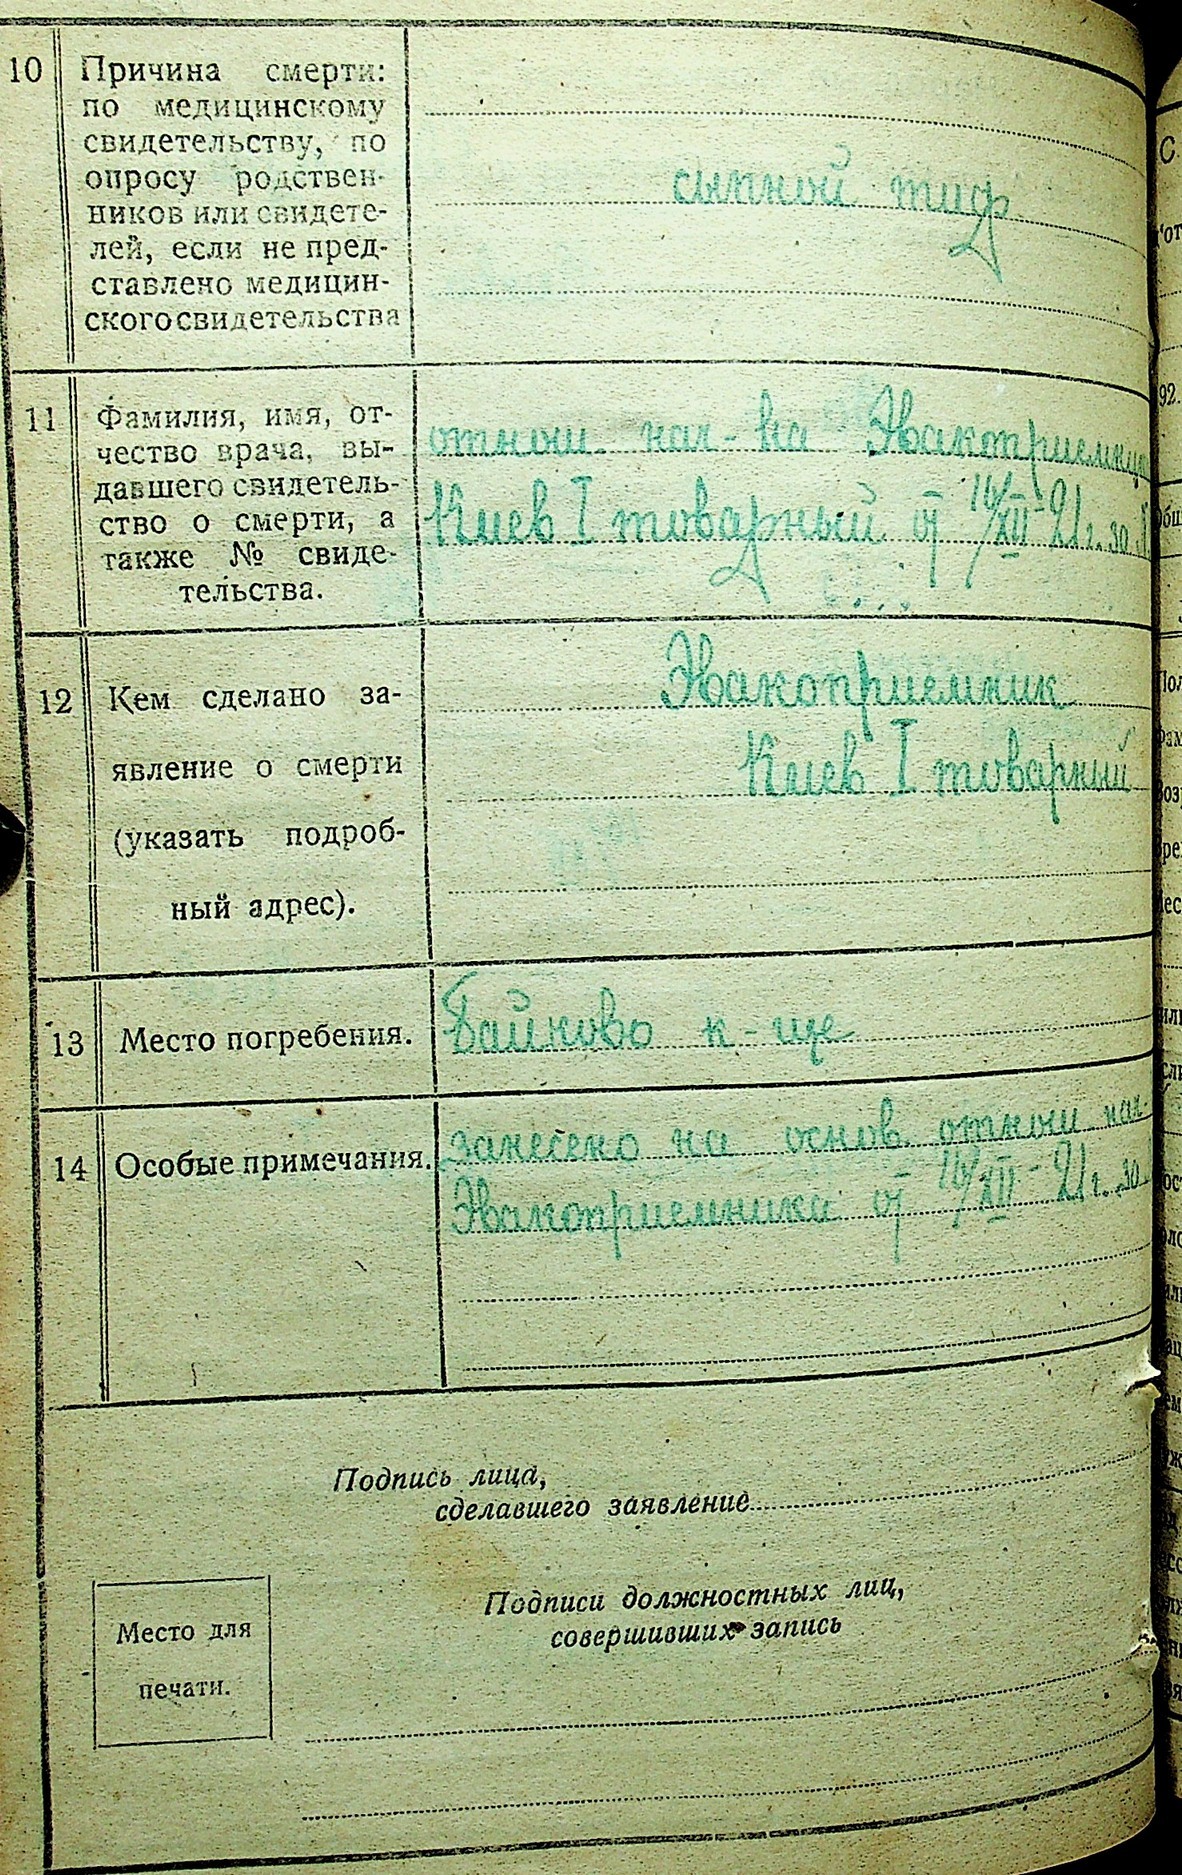 10 Причина смерти:
по медицинскому
свидетельству, по
опросу родствен-
ников или свидете-
лей, если не пред-
ставлено медицин-
ского свидетельства
сыпной тиф
11 Фамилия, имя, от-
чество врача, вы-
давшего свидетель-
ство о смерти, а
также № свиде-
тельства.
отнош. нач-ка Эвакоприемника
Киев I товарный от 16/XII-21г. за №
12 Кем сделано за-
явление о смерти
(указать подроб-
ный адрес).
Эвакоприемник
Киев I товарный
13 Место погребения.
Байково к-ще
14 Особые примечания.
занесено на основ. отнош. нач.
Эвакоприемника от 16/XII-21г. за
Подпись лица,
сделавшего заявление
Место для
печати.
Подписи должностных лиц,
совершивших запись